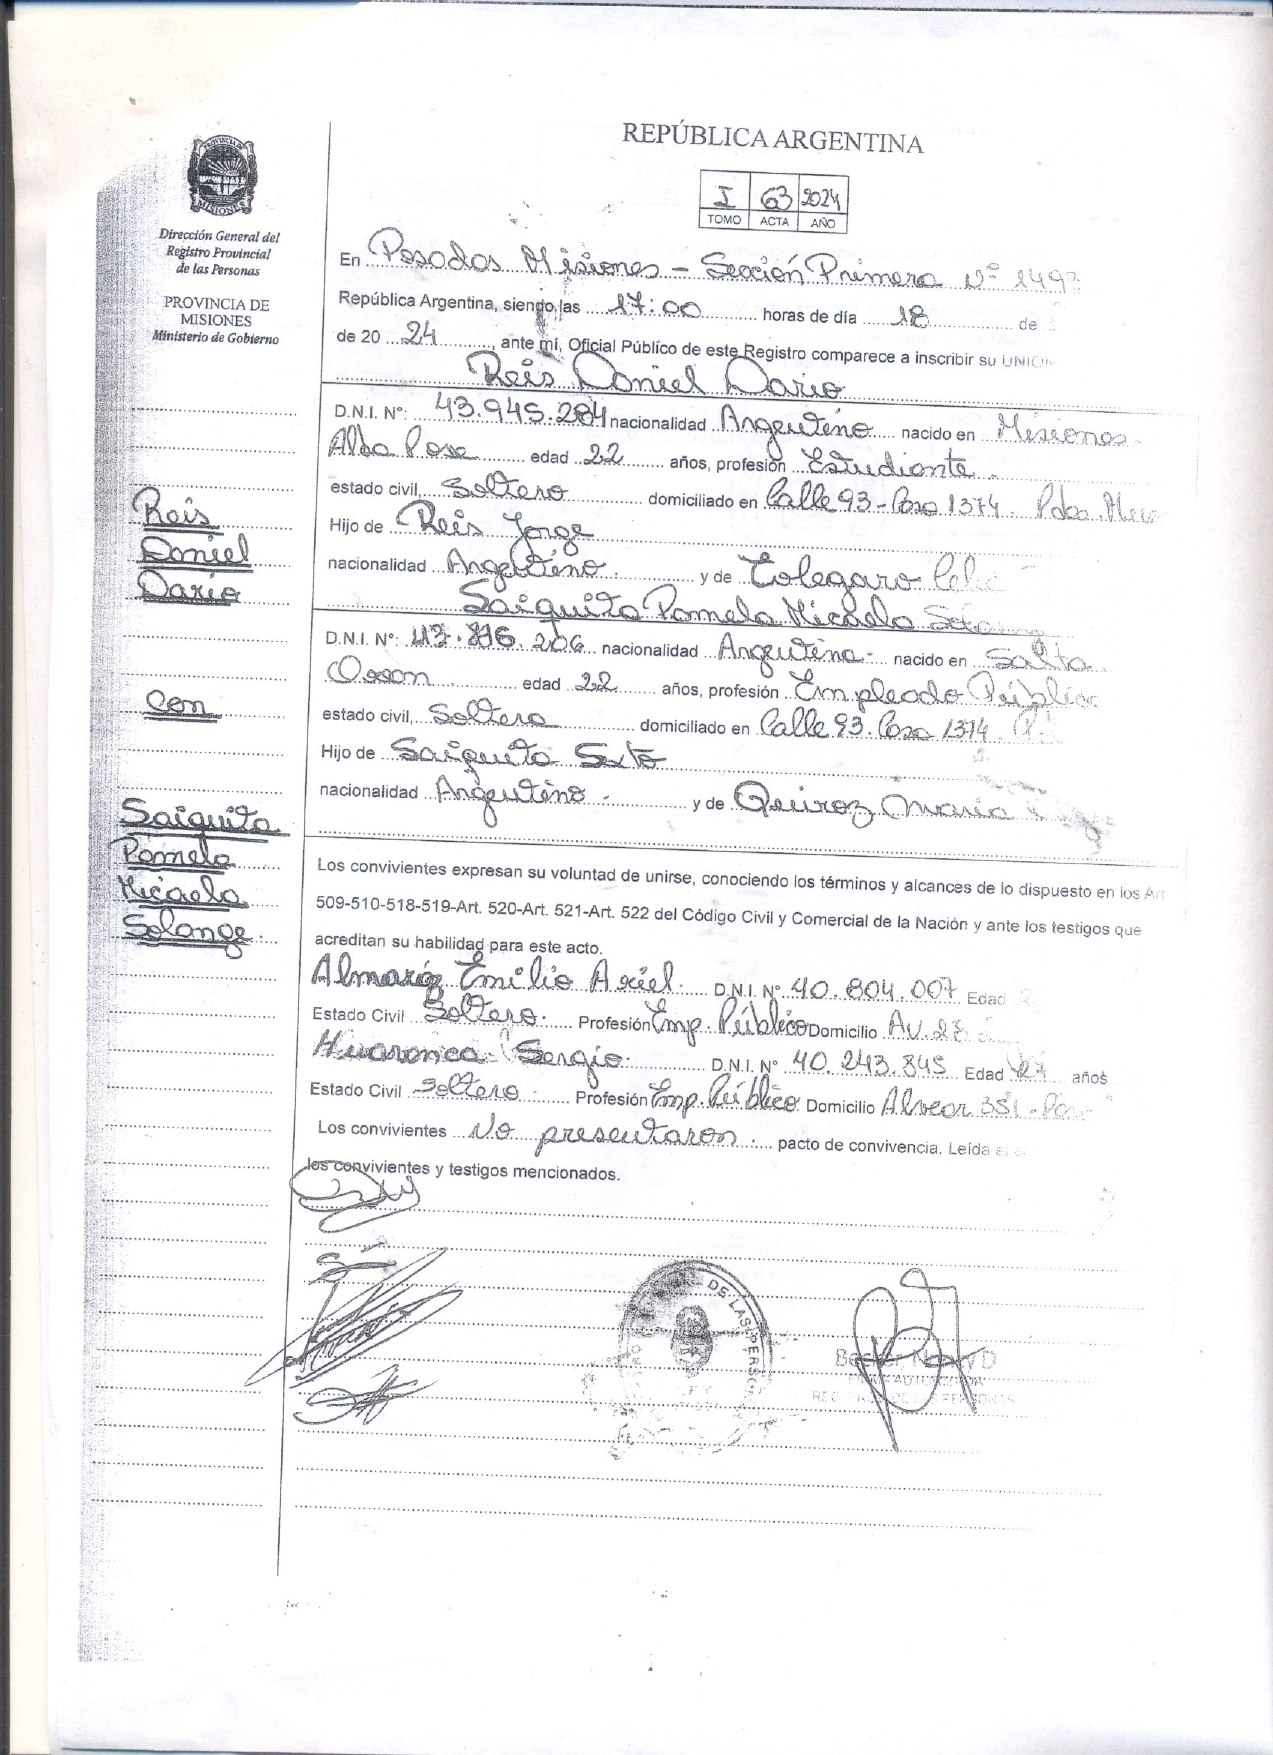 REPÚBLICA ARGENTINA
I 63 2024
TOMO ACTA AÑO
PROVINCIA DE
MISIONES
Dirección General del
Registro Provincial
de las Personas
PROVINCIA DE
MISIONES
Ministerio de Gobierno
Reis
Daniel
Dario
Con
Saiquita
Pamela
Micaela
Solange.
En Posadas Misiones - Sección Primera Nº 149
República Argentina, siendo las 17:00 horas de día 18 de
de 20 24, ante mí, Oficial Público de este Registro comparece a inscribir su UNION
Reis Daniel Dario
D.N.I. Nº: 43.945.284 nacionalidad Argentino nacido en Misiones.
Alba Pose edad 22 años, profesión Estudiante.
estado civil, Soltero domiciliado en Calle 93 - Casa 1374. Pdas.
Hijo de Reis Jorge
nacionalidad Argentino. y de
Saiquita Pamela Micaela
D.N.I. Nº: nacionalidad Argentina. nacido en Salta
Oran edad 22 años, profesión Empleado Público
estado civil, Soltera domiciliado en Calle 93. Casa 1374.
Hijo de Saiquita Sixto
nacionalidad Argentino. y de Queiroz Maria
Los convivientes expresan su voluntad de unirse, conociendo los términos y alcances de lo dispuesto en los Art
509-510-518-519-Art. 520-Art. 521-Art. 522 del Código Civil y Comercial de la Nación y ante los testigos que
acreditan su habilidad para este acto.
Almaráz Emilio Ariel. D.N.I. Nº 40.804.007 Edad
Estado Civil Soltero. Profesión Emp. Público Domicilio Av.
Sergio. D.N.I. Nº 40.243.845 Edad 27 años
Estado Civil Soltero. Profesión Emp. Público Domicilio Alvear 351 -
Los convivientes No presentaron. pacto de convivencia. Leída
los convivientes y testigos mencionados.
DE LAS PERSO